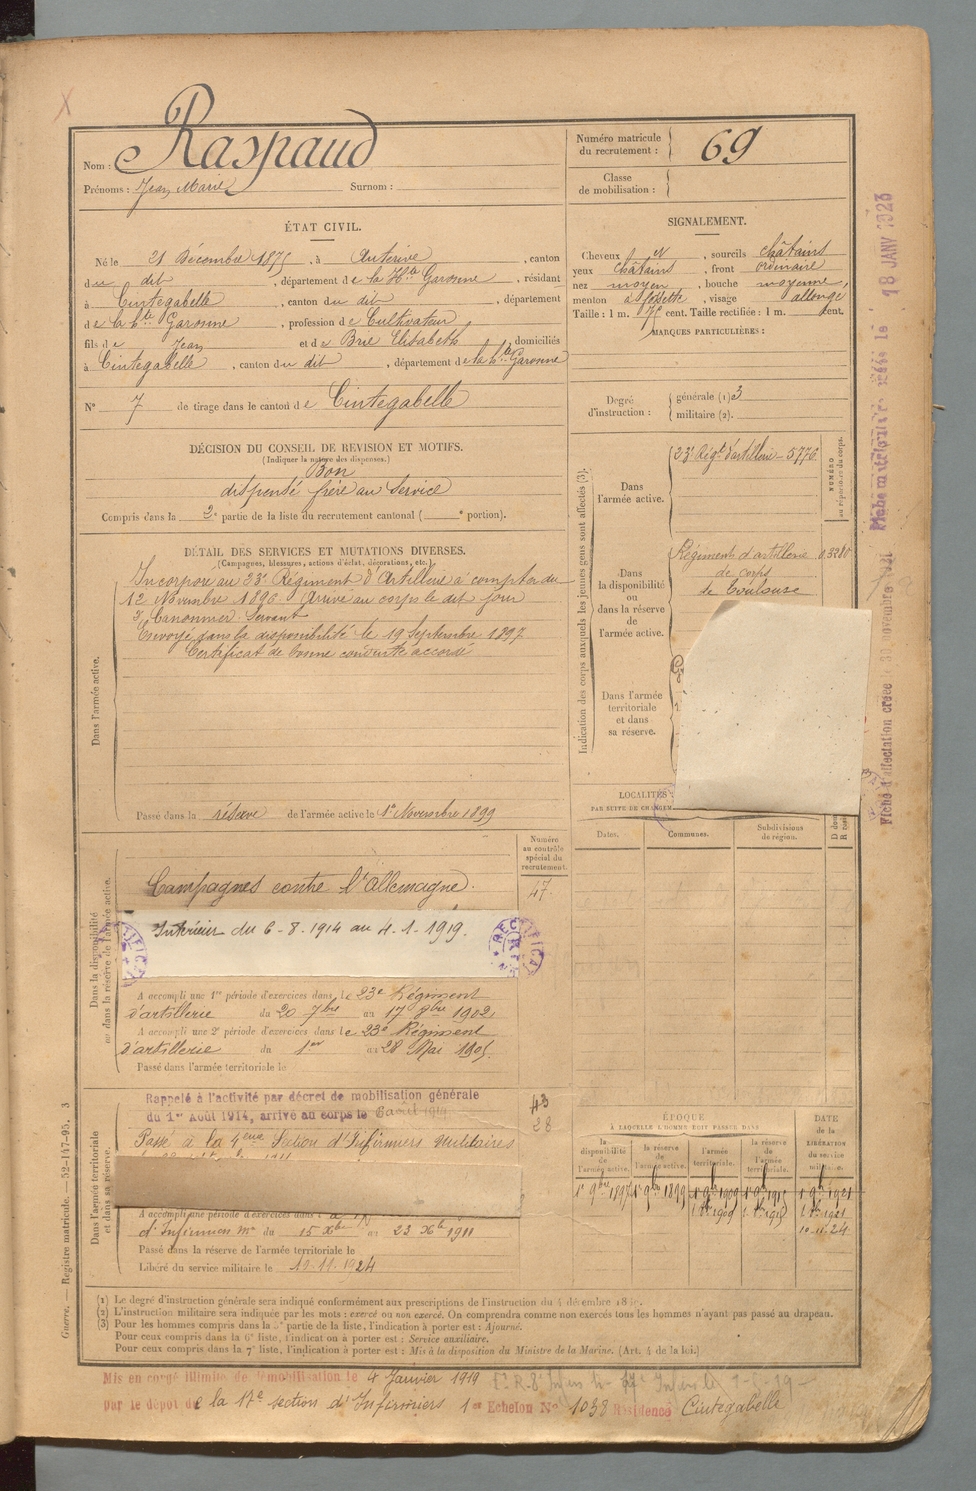 Nom : Raspaud
Prénoms : Jean Marie Surnom :
Numéro matricule
du recrutement : 69
Classe
de mobilisation :
ÉTAT CIVIL.
Né le 21 Décembre 1875, à Auterive, canton
du dit, département de la Hte Garonne, résidant
à Cintegabelle, canton du dit, département
de la hte Garonne, profession de Cultivateur
fils de Jean et de Brie Elisabeth, domiciliés
à Cintegabelle, canton du dit, département de la hte Garonne
N° 7 de tirage dans le canton de Cintegabelle
SIGNALEMENT.
Cheveux et, sourcils châtains
yeux châtains, front ordinaire
nez moyen, bouche moyenne,
menton à fossette, visage allongé
Taille : 1 m. cent. Taille rectifiée : 1 m. cent.
MARQUES PARTICULIÈRES :
Degré
d'instruction :
générale (1) 3
militaire (2).
DÉCISION DU CONSEIL DE REVISION ET MOTIFS.
(Indiquer la nature des dispenses.)
Bon
dispensé frère au Service
Compris dans la 2e partie de la liste du recrutement cantonal ( e portion).
DÉTAIL DES SERVICES ET MUTATIONS DIVERSES.
(Campagnes, blessures, actions d'éclat, décorations, etc.)
Dans l'armée active.
Incorporé au 23e Régiment d'Artillerie à compter du
12 Novembre 1896 Arrivé au corps le dit jour
Canonnier Servant
Envoyé dans la disponibilité le 19 Septembre 1897
Certificat de bonne conduite accordé
Passé dans la réserve de l'armée active le 1er Novembre 1899
Indication des corps auxquels les jeunes gens sont affectés (3).
Dans
l'armée active.
23e Régt d'artillerie - 5776
NUMÉRO
au répertoire du corps.
Dans
la disponibilité
ou
dans la réserve
de
l'armée active.
Régiment d'artillerie
de corps
de Toulouse
Dans l'armée
territoriale
et dans
sa réserve.
LOCALITÉS
PAR SUITE DE CHANGEM
Dates. Communes. Subdivisions
de région.
Numéro
au contrôle
spécial du
recrutement.
47.
Dans la disponibilité
ou dans la réserve de l'armée active.
Campagnes contre l'Allemagne.
Intérieur du 6-8-1914 au 4-1-1919.
A accompli une 1re période d'exercices dans le 23e Régiment
d'artillerie du 20 7bre au 17 8bre 1902.
A accompli une 2e période d'exercices dans le 23e Régiment
d'artillerie du 1er au 28 Mai 1905.
Passé dans l'armée territoriale le
Dans l'armée territoriale
et dans sa réserve.
Rappelé à l'activité par décret de mobilisation générale
du 1er Août 1914, arrivé au corps le 6 août 1914
43
28
Passé à la 4ème Section d'Infirmiers Militaires
A accompli une période d'exercices dans :
d'Infirmiers Mres du 15 Xbre au 23 Xbre 1911
Passé dans la réserve de l'armée territoriale le
Libéré du service militaire le 10-11-1924
ÉPOQUE
À LAQUELLE L'HOMME DOIT PASSER DANS
la
disponibilité
de
l'armée active.
la réserve
de
l'armée active.
l'armée
territoriale.
la réserve
de
l'armée
territoriale.
DATE
de la
LIBÉRATION
du service
militaire.
1er 9bre 1897 1er 9bre 1899 1er 9bre 1909 1er 9bre 1915 1er 9bre 1921
10-11-24
(1) Le degré d'instruction générale sera indiqué conformément aux prescriptions de l'instruction du 4 décembre
(2) L'instruction militaire sera indiquée par les mots : exercé ou non exercé. On comprendra comme non exercés tous les hommes n'ayant pas passé au drapeau.
(3) Pour les hommes compris dans la 5e partie de la liste, l'indication à porter est : Ajourné.
Pour ceux compris dans la 6e liste, l'indication à porter est : Service auxiliaire.
Pour ceux compris dans la 7e liste, l'indication à porter est : Mis à la disposition du Ministre de la Marine. (Art. 4 de la loi.)
Mis en congé illimité de démobilisation le 4 Janvier 1919
par le dépôt de la 17e section d'Infirmiers 1er Echelon N° 1038 Résidence Cintegabelle
Guerre. — Registre matricule. — 52-147-95. 3
18 JANV 1923
Fiche d'affectation créée le 30 novembre 1921